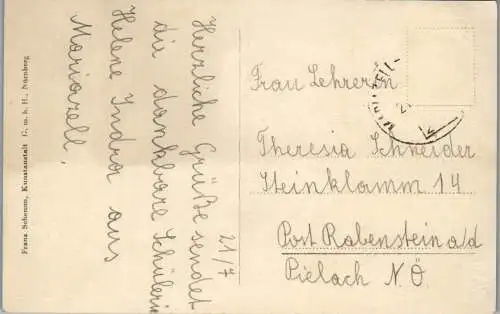 21/7
Herzliche Grüße sendet
die dankbare Schülerin
Helene Indra aus
Mariazell.
Frau Lehrerin
Theresia Schneider
Steinklamm 14
Post Rabenstein a/d
Pielach N.Ö.
Franz Schemm, Kunstanstalt G. m. b. H., Nürnberg